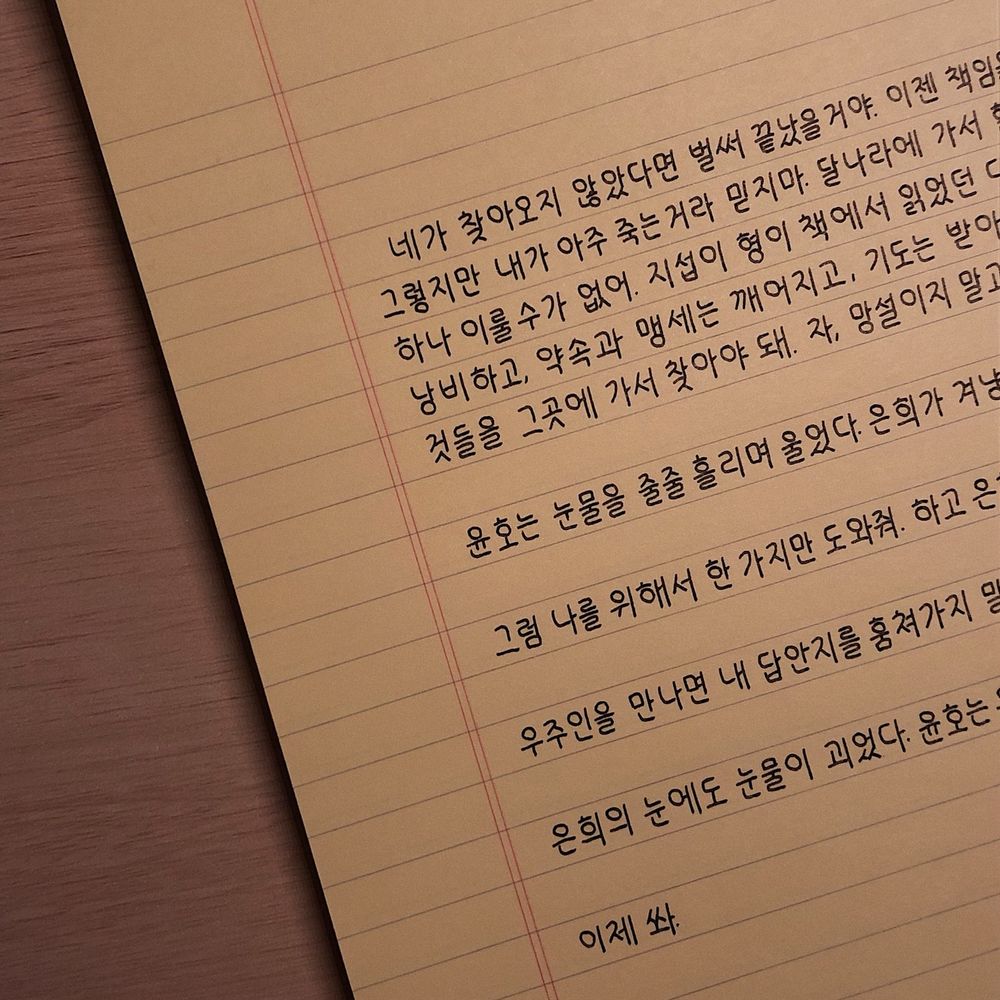 네가 찾아오지 않았다면 벌써 끝났을거야. 이젠 책임을
그렇지만 내가 아주 죽는거라 믿지마. 달나라에 가서
하나 이룰수가 없어. 지섭이 형이 책에서 읽었던
낭비하고, 약속과 맹세는 깨어지고, 기도는 받아
것들을 그곳에 가서 찾아야 돼. 자, 망설이지 말고
윤호는 눈물을 줄줄 흘리며 울었다. 은희가 겨냥
그럼 나를 위해서 한 가지만 도와줘. 하고
우주인을 만나면 내 답안지를 훔쳐가지
은희의 눈에도 눈물이 괴었다. 윤호는
이제 쏴.